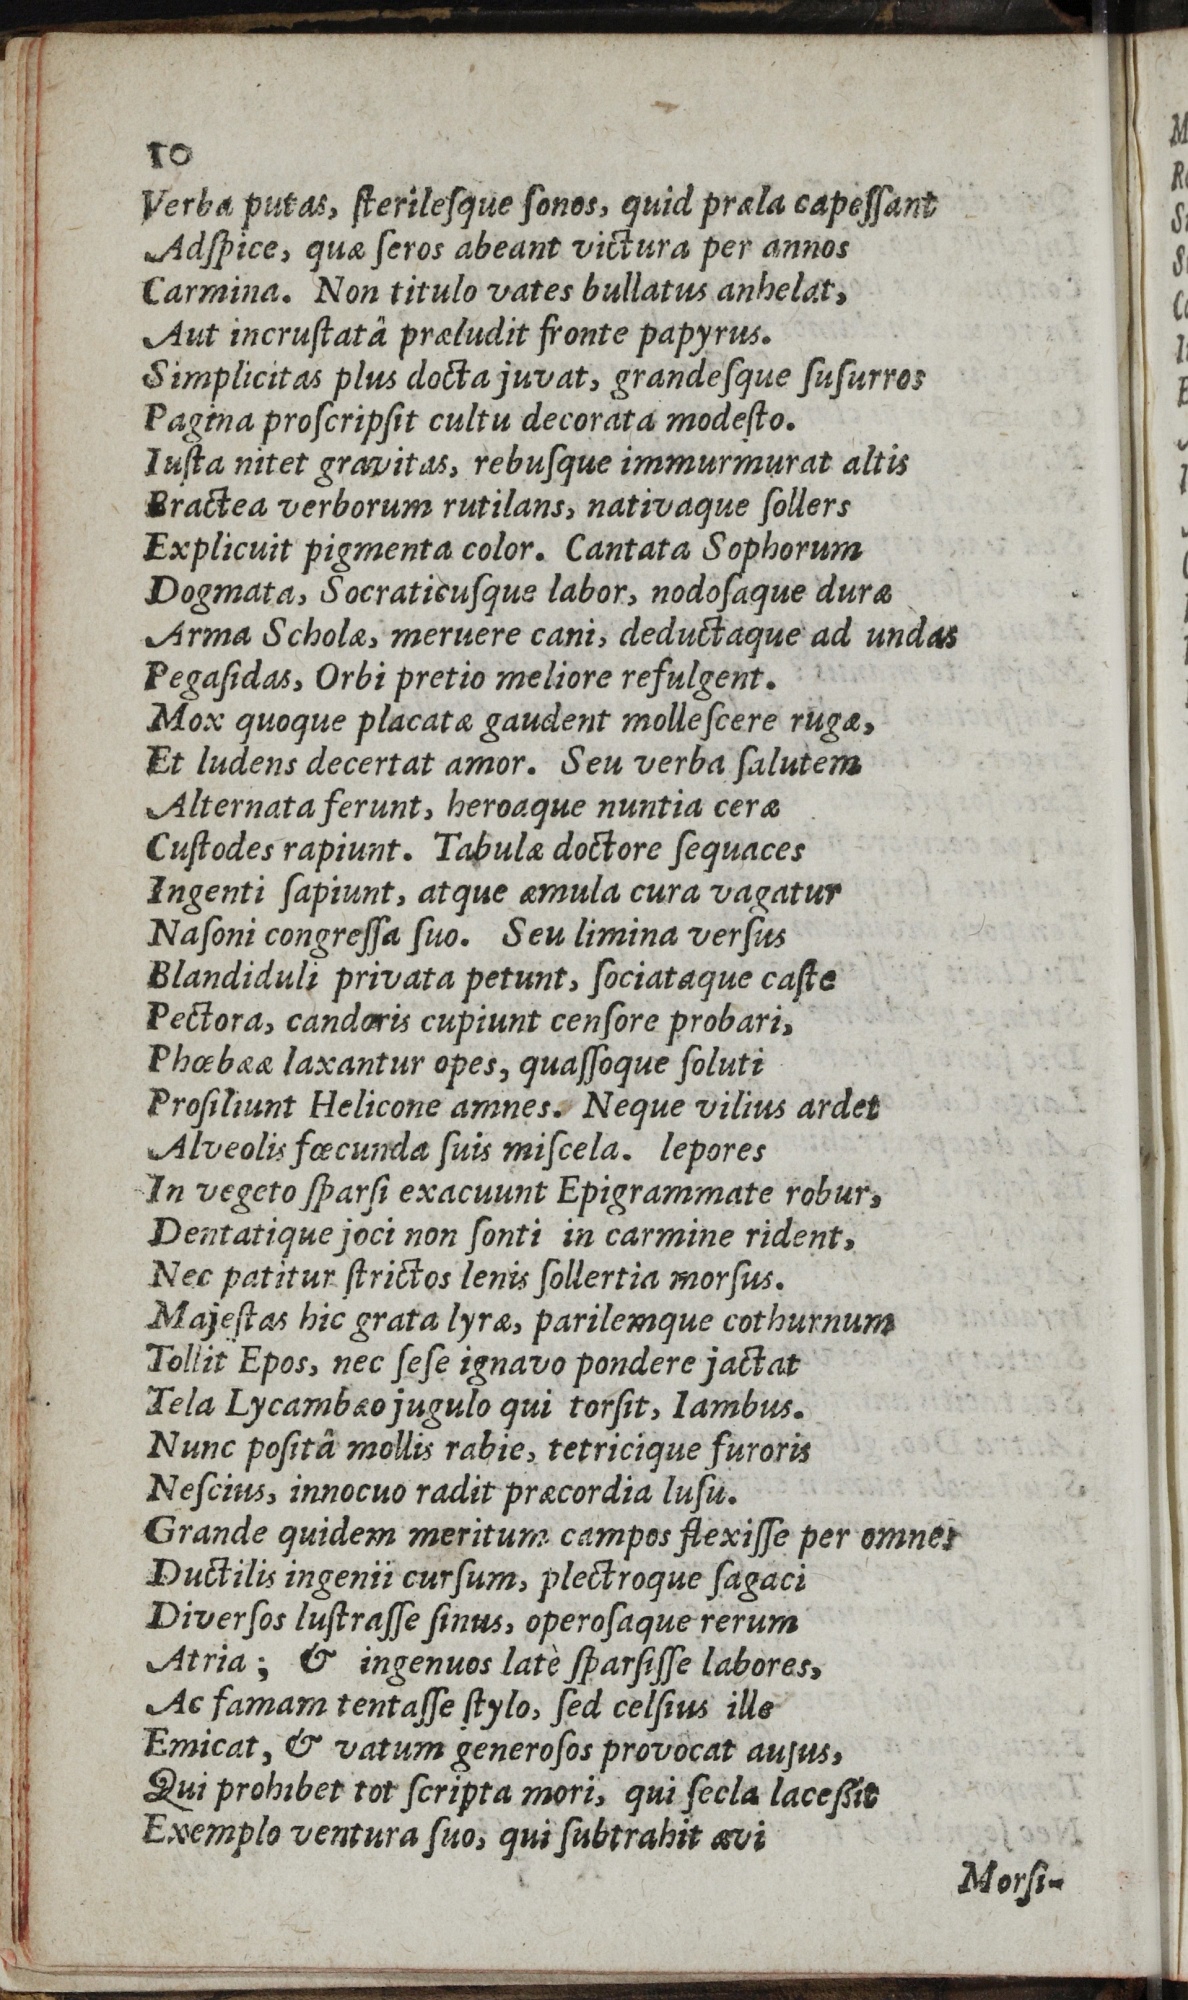 10
Verba putas, ſterileſque ſonos, quid præla capeſſant
Adſpice, quæ ſeros abeant victura per annos
Carmina. Non titulo vates bullatus anhelat,
Aut incruſtatâ præludit fronte papyrus.
Simplicitas plus docta juvat, grandeſque ſuſurros
Pagina proſcripſit cultu decorata modeſto.
Iuſta nitet gravitas, rebuſque immurmurat altis
Bractea verborum rutilans, nativaque ſollers
Explicuit pigmenta color. Cantata Sophorum
Dogmata, Socraticuſque labor, nodoſaque duræ
Arma Scholæ, meruere cani, deductaque ad undas
Pegaſidas, Orbi pretio meliore refulgent.
Mox quoque placatæ gaudent molleſcere rugæ,
Et ludens decertat amor. Seu verba ſalutem
Alternata ferunt, heroaque nuntia ceræ
Cuſtodes rapiunt. Tabulæ doctore ſequaces
Ingenti ſapiunt, atque æmula cura vagatur
Naſoni congreſſa ſuo. Seu limina verſus
Blandiduli privata petunt, ſociataque caſte
Pectora, candoris cupiunt cenſore probari,
Phœbææ laxantur opes, quaſſoque ſoluti
Proſiliunt Helicone amnes. Neque vilius ardet
Alveolis fœcunda ſuis miſcela. lepores
In vegeto ſparſi exacuunt Epigrammate robur,
Dentatique joci non ſonti in carmine rident,
Nec patitur ſtrictos lenis ſollertia morſus.
Majeſtas hic grata lyræ, parilemque cothurnum
Tollit Epos, nec ſeſe ignavo pondere jactat
Tela Lycambæo jugulo qui torſit, Iambus.
Nunc poſitâ mollis rabie, tetricique furoris
Neſcius, innocuo radit præcordia luſu.
Grande quidem meritum campos flexiſſe per omnes
Ductilis ingenii curſum, plectroque ſagaci
Diverſos luſtraſſe ſinus, operoſaque rerum
Atria; & ingenuos latè ſparſiſſe labores,
Ac famam tentaſſe ſtylo, ſed celſius ille
Emicat, & vatum generoſos provocat auſus,
Qui prohibet tot ſcripta mori, qui ſecla laceßit
Exemplo ventura ſuo, qui ſubtrahit ævi
Morſi-